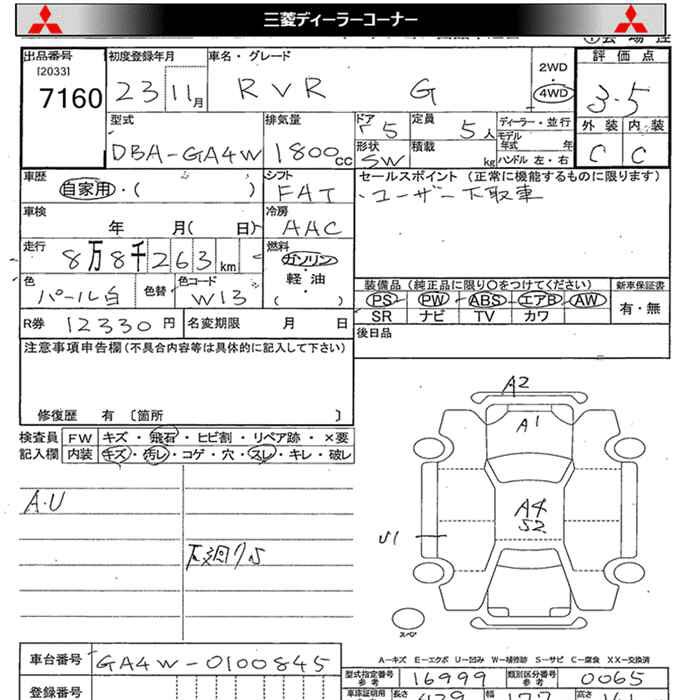 三菱ディーラーコーナー
出品番号 初度登録年月 車名・グレード 評価点
[2033]
7160 23 11月 RVR G 2WD 4WD 3.5
外装 内装
C C
型式 排気量 ドア 定員 ディーラー・並行
DBA-GA4W 1800cc 5 5人 モデル年式 年
形状 SW 積載 kg ハンドル 左・右
車歴 シフト セールスポイント(正常に機能するものに限ります)
自家用・( ) FAT ・ユーザー下取車
車検 冷房
年 月( 日) AAC
走行 燃料
8万8千263km ガソリン
軽・油
( )
色 色替 色コード 装備品(純正品に限り○をつけてください) 新車保証書
パール白 W13 PS PW ABS エアB AW 有・無
SR ナビ TV カワ
R券 12330円 名変期限 月 日
後日品
注意事項申告欄(不具合内容等は具体的に記入して下さい)
修復歴 有 〔箇所 〕
検査員 FW キズ・飛石・ヒビ割・リペア跡・×要
記入欄 内装 キズ・汚レ・コゲ・穴・スレ・キレ・破レ
A.U
下廻りS
A2
A1
A4
S2
U1
スペア
A-キズ E-エクボ U-凹み W-補修跡 S-サビ C-腐食 XX-交換済
車台番号 GA4W-0100845
型式指定番号 参考 16999 類別区分番号 参考 0065
登録番号 車庫証明用 長さ 幅 高さ